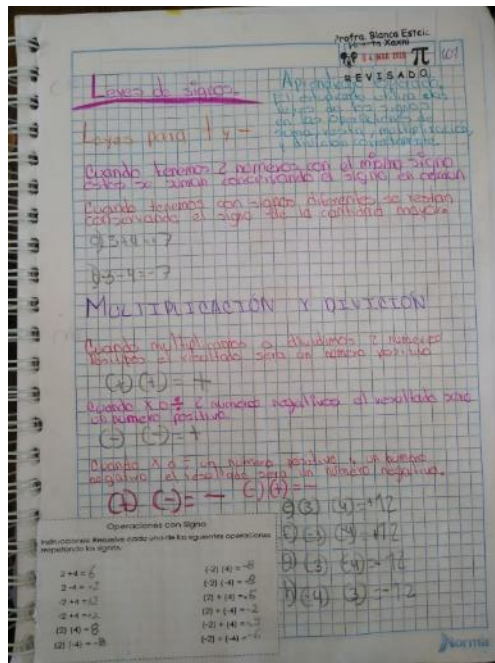 Profra. Blanca Estel
REVISADO
π
601
Leyes de signos.
Aprendizaje esperado.
leyes de los signos
en las operaciones de
suma, resta, multiplicación
y división
Leyes para + y -
Cuando tenemos 2 números con el mismo signo
estos se suman conservando el signo en común
Cuando tenemos con signos diferentes se restan
conservando el signo de la cantidad mayor.
3+4=+7
-3-4=-7
MULTIPLICACIÓN Y DIVICIÓN
Cuando multiplicamos o dividimos 2 números
positivos el resultado sera un número positivo
(+) (+) = +
Cuando x o ÷ 2 números negativos el resultado sera
un número positivo
(-) (-) = +
Cuando x o ÷ un número positivo y un número
negativo el resultado sera un número negativo.
(+) (-) = - (-)(+) = -
(3) (4)=+12
(-3) (-4)=+12
(3) (-4)=-12
(-4) (3)=-12
Operaciones con Signo
Instrucciones: Resuelve cada uno de los siguientes operaciones
respetando los signos.
2 +4 = 6
2 -4 = -2
-2 +4 =
-2 +4 =
(2) (4) = 8
(2) (-4) = -8
(-2) (4) = -8
(-2) (-4) = -8
(2) + (4) =
(2) + (-4) = -2
(-2) + (4) =
(-2) + (-4) = -6
Norma